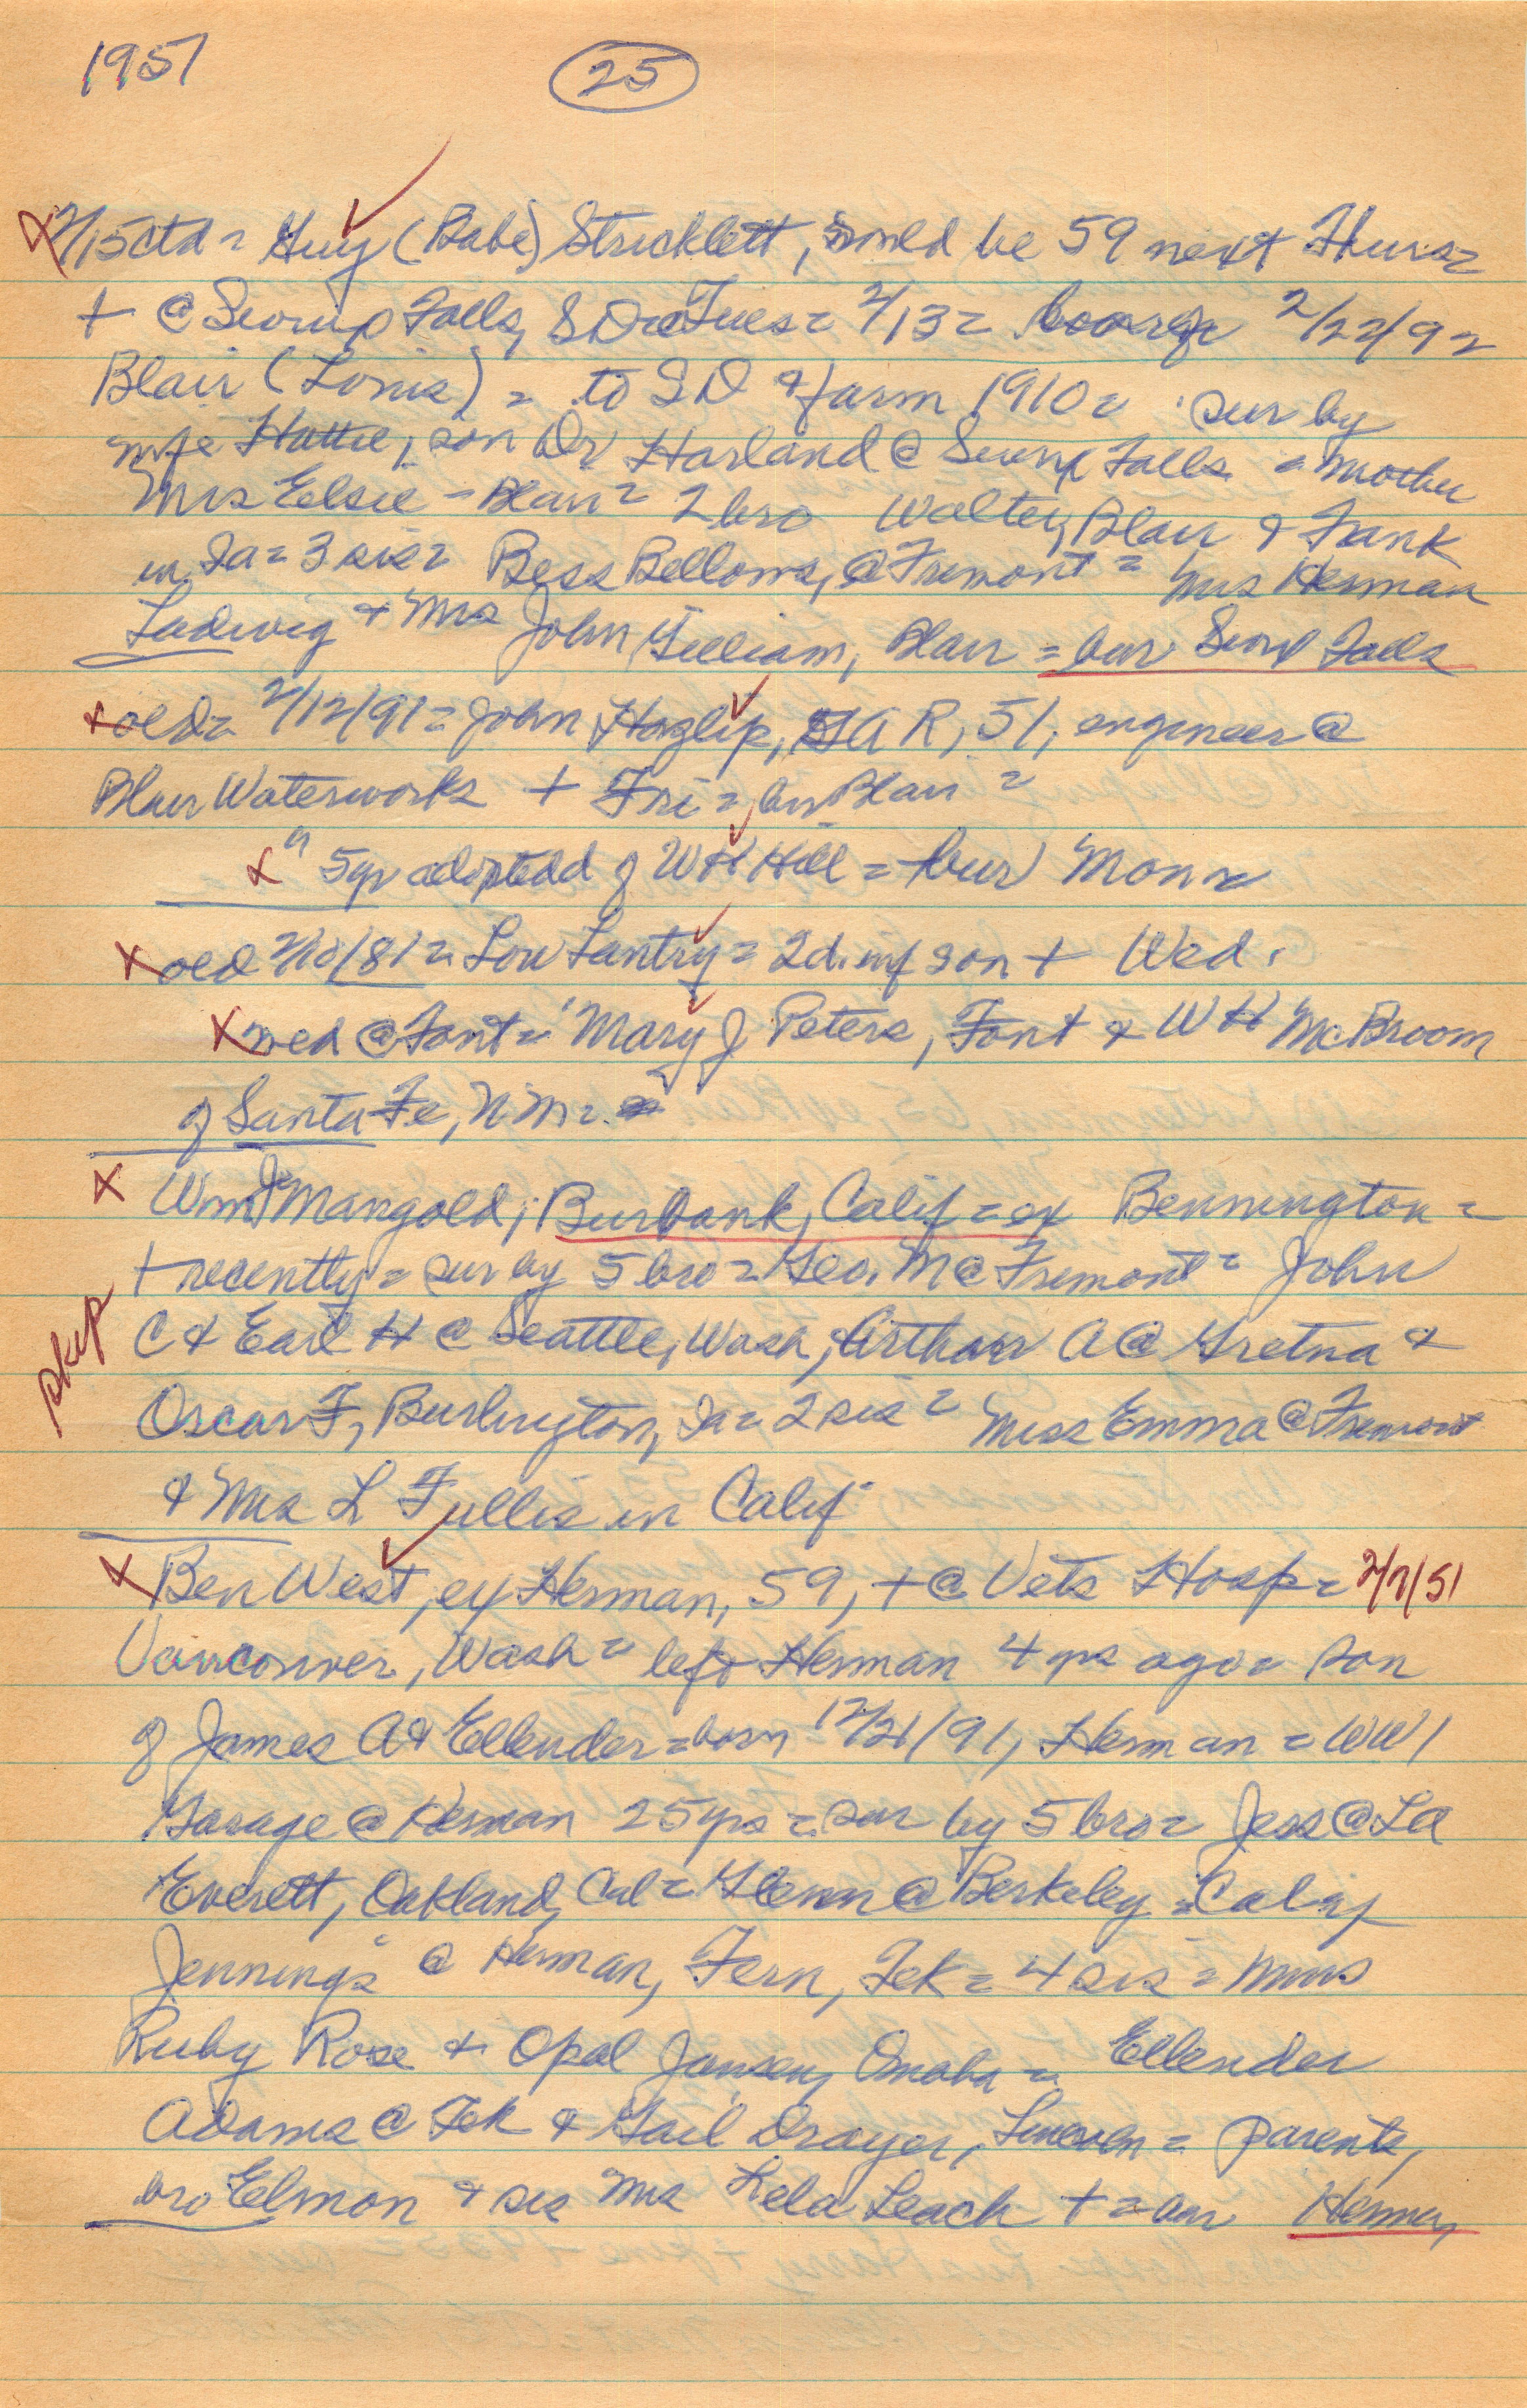 1951
25
2/15 ctd = Guy (Babe) Stricklett, would be 59 next Thurs =
+ @ Sioux Falls, SD Tues = 2/13 = born 2/22/92
Blair (Louis) = to SD & farm 1910 = sur by
wife Hattie, son Dr Harland @ Sioux Falls = mother
Mrs Elsie - Blair = 2 bro Walter, Blair & Frank
in Ia = 3 sis = Bess Bellows, @ Fremont = Mrs Herman
Ludwig & Mrs John Gilliam, Blair = bur Sioux Falls
x old = 2/12/91 = John Hazlip, GAR, 51, engineer @
Blair Waterworks + Fri = bur Blair =
x " 5 yr adopted d of WH Hill = bur Mon =
x old 2/10/81 = Low Lantry = 2d. inf son + Wed.
x wed @ Font = Mary J Peters, Font & WH McBroom
of Santa Fe, N.M. =
x Wm J Mangold, Burbank, Calif = ex Bennington =
+ recently = sur by 5 bro = Geo. M @ Fremont = John
skip
C & Earl H @ Seattle, Wash, Arthur A @ Gretna &
Oscar F, Burlington, Ia = 2 sis = Miss Emma @ Fremont
& Mrs L Tullis in Calif
x Ben West, ex Herman, 59, + @ Vets Hosp = 2/7/51
Vancouver, Wash = left Herman 4 yrs ago = son
of James A & Ellender = born 12/21/91, Herman = WW1
Garage @ Herman 25 yrs = sur by 5 bro = Jess @ LA
Everett, Oakland, Cal = Glenn @ Berkeley = Calif
Jennings @ Herman, Fern, Tek = 4 sis = Mmes
Ruby Rose & Opal Jansen, Omaha = Ellender
Adams @ Tek & Gail Drayer, = parents,
bro Elmon & sis Mrs Lela Leach + = bur Herman